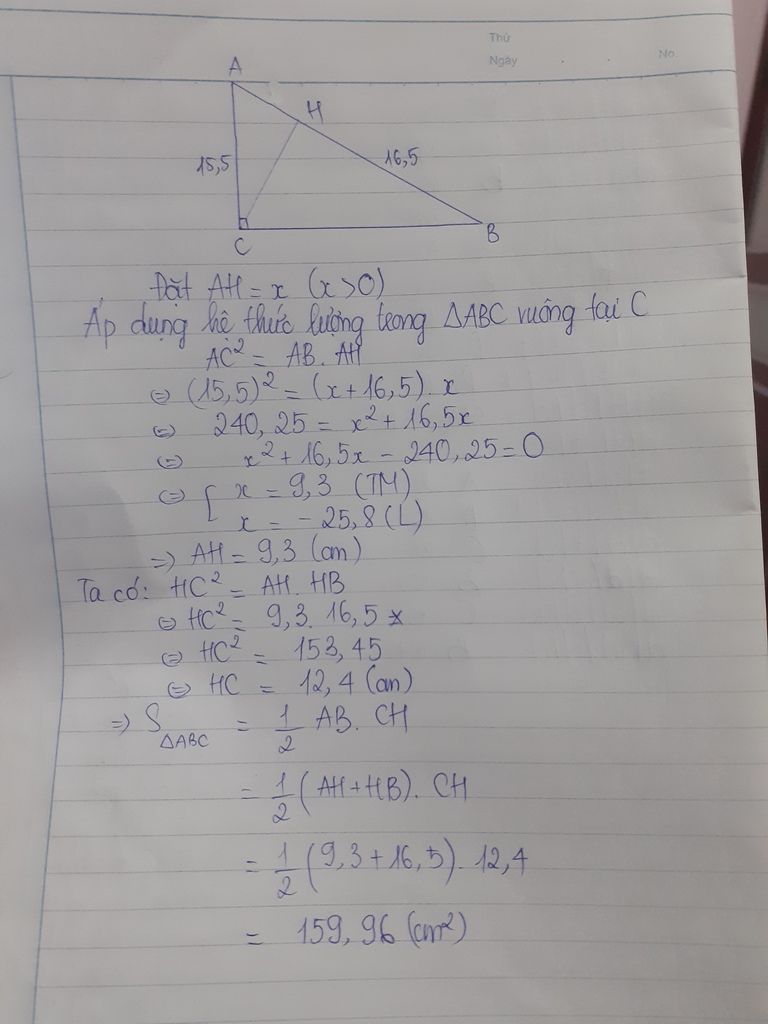 Thứ
Ngày . . No
A
H
15,5
16,5
C
B
Đặt AH = x (x > 0)
Áp dụng hệ thức lượng trong ΔABC vuông tại C
AC² = AB. AH
⇔ (15,5)² = (x + 16,5). x
⇔ 240,25 = x² + 16,5x
⇔ x² + 16,5x - 240,25 = 0
⇔ [ x = 9,3 (TM)
x = - 25,8 (L)
=> AH = 9,3 (cm)
Ta có: HC² = AH. HB
⇔ HC² = 9,3. 16,5
⇔ HC² = 153,45
⇔ HC = 12,4 (cm)
=> S ΔABC = 1/2 AB. CH
= 1/2 (AH + HB). CH
= 1/2 (9,3 + 16,5). 12,4
= 159,96 (cm²)